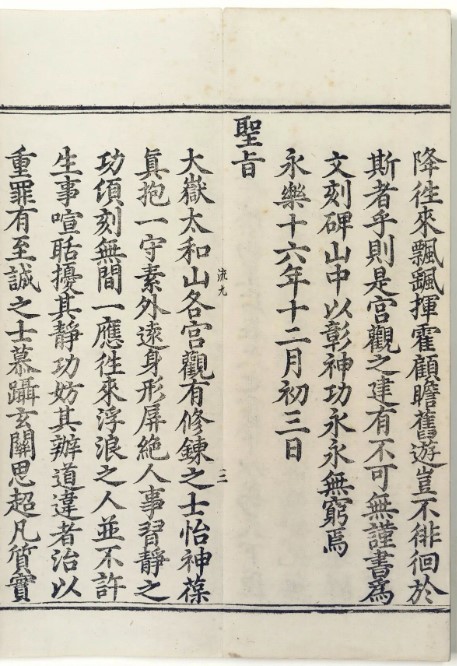 降徃來飄飄揮霍顧瞻舊遊豈不徘徊於
斯者乎則是宮觀之建有不可無謹書為
文刻碑山中以彰神功永永無窮焉
永樂十六年十二月初三日
聖旨
流九
三
大嶽太和山各宮觀有修鍊之士怡神葆
眞抱一守素外遠身形屏絕人事習靜之
功頃刻無間一應徃來浮浪之人並不許
生事喧聒擾其靜功妨其辦道違者治以
重罪有至誠之士慕躡玄關思超凡質實